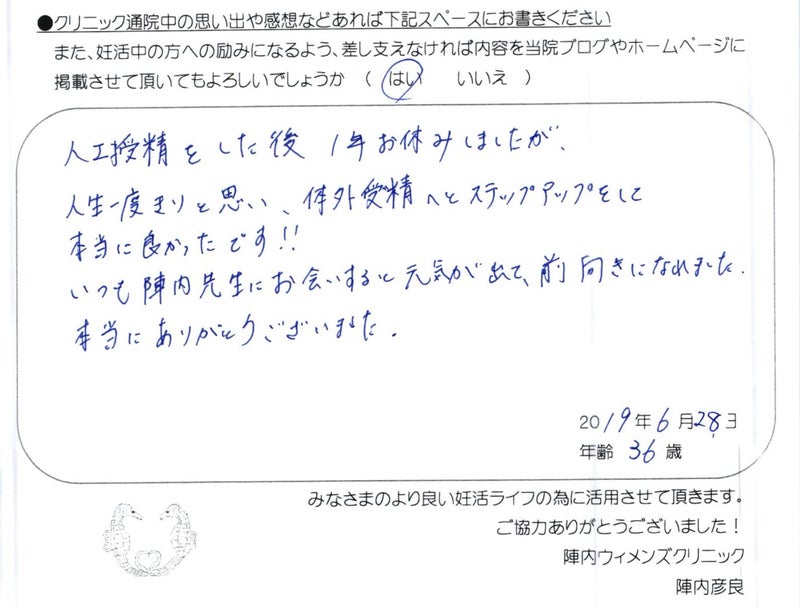 ●クリニック通院中の思い出や感想などあれば下記スペースにお書きください
また、妊活中の方への励みになるよう、差し支えなければ内容を当院ブログやホームページに
掲載させて頂いてもよろしいでしょうか （ はい いいえ ）
人工授精をした後 1年お休みしましたが、
人生一度きりと思い、体外受精へとステップアップをして
本当に良かったです!!
いつも陣内先生にお会いすると元気が出て、前向きになれました.
本当にありがとうございました.
2019年6月28日
年齢 36 歳
みなさまのより良い妊活ライフの為に活用させて頂きます。
ご協力ありがとうございました！
陣内ウィメンズクリニック
陣内彦良